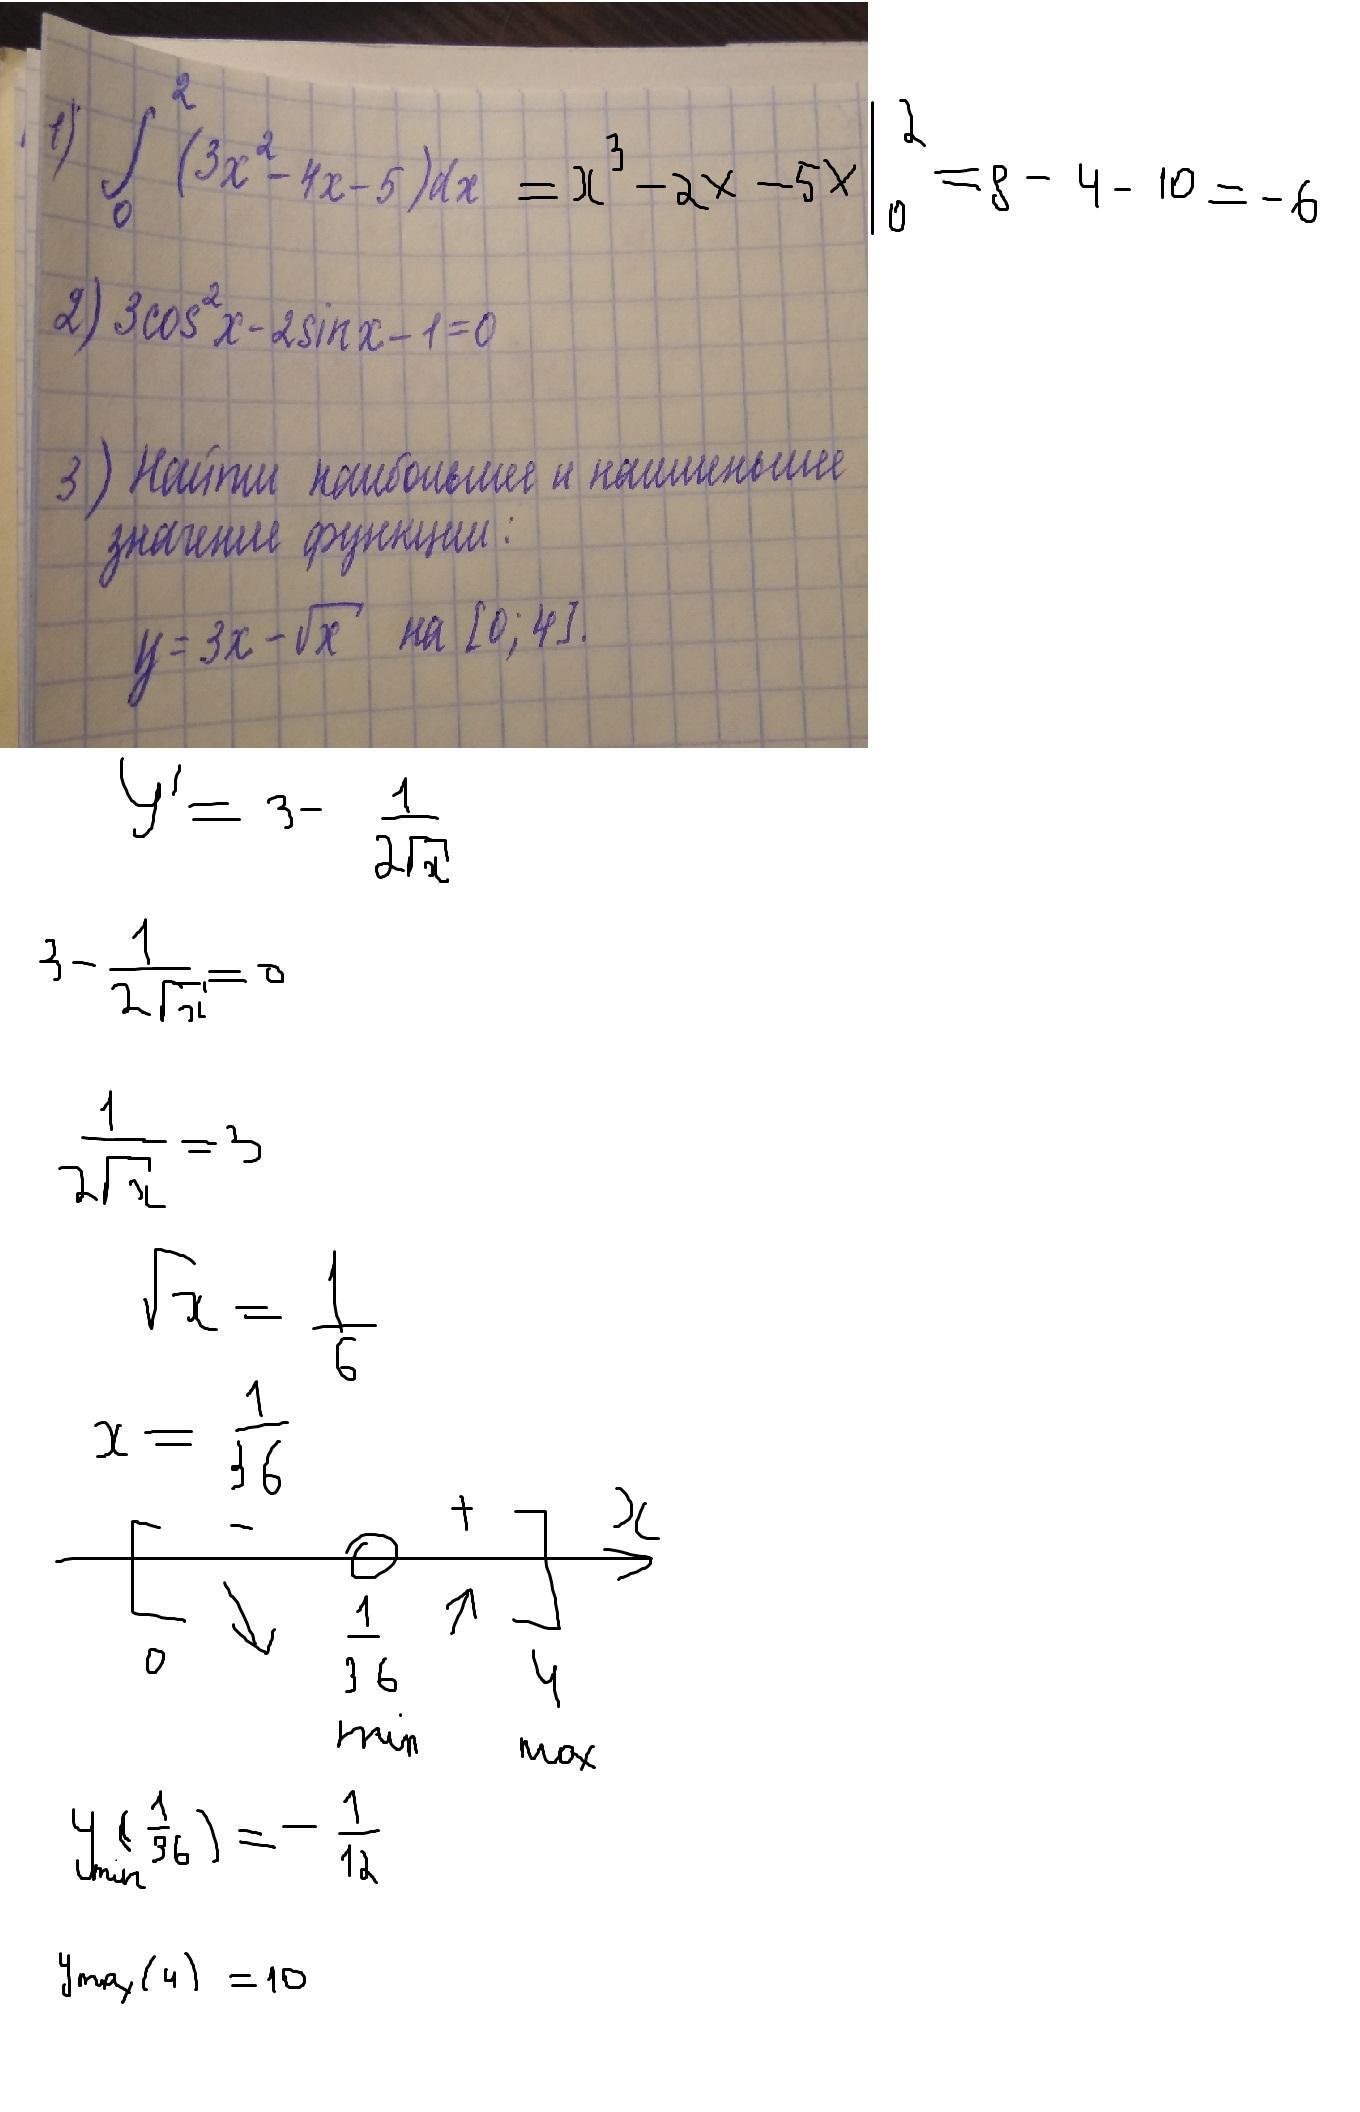 1) ∫₀² (3x² - 4x - 5)dx = x³ - 2x - 5x |₀² = 8 - 4 - 10 = -6
2) 3cos²x - 2sinx - 1 = 0
3) Найти наибольшее и наименьшее
значение функции:
y = 3x - √x на [0; 4].
y' = 3 - 1/(2√x)
3 - 1/(2√x) = 0
1/(2√x) = 3
√x = 1/6
x = 1/36
- + x
0 1/36 4
min max
y min (1/36) = - 1/12
y max (4) = 10